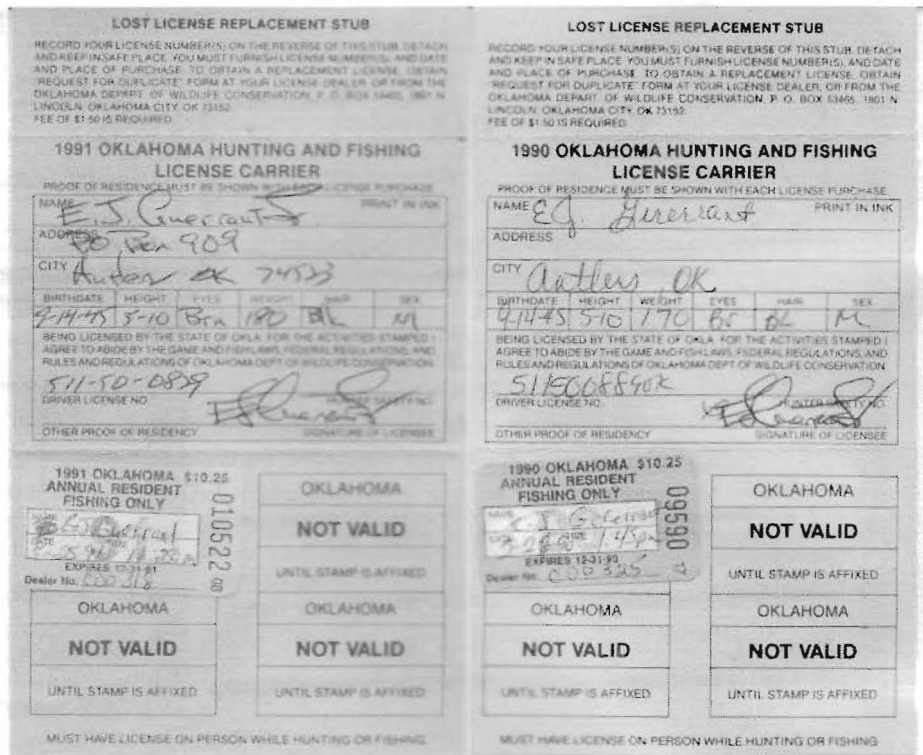 LOST LICENSE REPLACEMENT STUB
RECORD YOUR LICENSE NUMBER(S) ON THE REVERSE OF THIS STUB. DETACH
AND KEEP IN SAFE PLACE. YOU MUST FURNISH LICENSE NUMBER(S), AND DATE
AND PLACE OF PURCHASE TO OBTAIN A REPLACEMENT LICENSE. OBTAIN
"REQUEST FOR DUPLICATE" FORM AT YOUR LICENSE DEALER, OR FROM THE
OKLAHOMA DEPART. OF WILDLIFE CONSERVATION, P. O. BOX 53465, 1801 N.
LINCOLN, OKLAHOMA CITY, OK 73152
FEE OF $1.50 IS REQUIRED
1991 OKLAHOMA HUNTING AND FISHING
LICENSE CARRIER
PROOF OF RESIDENCE MUST BE SHOWN WITH EACH LICENSE PURCHASE
NAME E. J. Guerrant PRINT IN INK
ADDRESS PO Box 909
CITY OK 74523
BIRTHDATE HEIGHT EYES WEIGHT HAIR SEX
9-14-45 5-10 Brn 180 Blk M
BEING LICENSED BY THE STATE OF OKLA. FOR THE ACTIVITIES STAMPED I
AGREE TO ABIDE BY THE GAME AND FISH LAWS, FEDERAL REGULATIONS, AND
RULES AND REGULATIONS OF OKLAHOMA DEPT OF WILDLIFE CONSERVATION
DRIVER LICENSE NO. HUNTER SAFETY NO.
OTHER PROOF OF RESIDENCY SIGNATURE OF LICENSEE
1991 OKLAHOMA $10.25
ANNUAL RESIDENT
FISHING ONLY
010522
NAME E J Guerrant
DATE TIME
EXPIRES 12-31-91
Dealer No. COD 318
OKLAHOMA
NOT VALID
UNTIL STAMP IS AFFIXED
OKLAHOMA
NOT VALID
UNTIL STAMP IS AFFIXED
OKLAHOMA
NOT VALID
UNTIL STAMP IS AFFIXED
MUST HAVE LICENSE ON PERSON WHILE HUNTING OR FISHING
LOST LICENSE REPLACEMENT STUB
RECORD YOUR LICENSE NUMBER(S) ON THE REVERSE OF THIS STUB. DETACH
AND KEEP IN SAFE PLACE. YOU MUST FURNISH LICENSE NUMBER(S), AND DATE
AND PLACE OF PURCHASE TO OBTAIN A REPLACEMENT LICENSE. OBTAIN
"REQUEST FOR DUPLICATE" FORM AT YOUR LICENSE DEALER, OR FROM THE
OKLAHOMA DEPART. OF WILDLIFE CONSERVATION, P. O. BOX 53465, 1801 N.
LINCOLN, OKLAHOMA CITY, OK 73152
FEE OF $1.50 IS REQUIRED
1990 OKLAHOMA HUNTING AND FISHING
LICENSE CARRIER
PROOF OF RESIDENCE MUST BE SHOWN WITH EACH LICENSE PURCHASE
NAME E J. Guerrant PRINT IN INK
ADDRESS
CITY Antlers, OK
BIRTHDATE HEIGHT WEIGHT EYES HAIR SEX
9-14-45 5-10 170 Br BL M
BEING LICENSED BY THE STATE OF OKLA. FOR THE ACTIVITIES STAMPED I
AGREE TO ABIDE BY THE GAME AND FISH LAWS, FEDERAL REGULATIONS, AND
RULES AND REGULATIONS OF OKLAHOMA DEPT OF WILDLIFE CONSERVATION
DRIVER LICENSE NO. HUNTER SAFETY NO.
OTHER PROOF OF RESIDENCY SIGNATURE OF LICENSEE
1990 OKLAHOMA $10.25
ANNUAL RESIDENT
FISHING ONLY
09590
NAME E J Guerrant
DATE TIME 1:45 pm
EXPIRES 12-31-90
Dealer No. COD 325
OKLAHOMA
NOT VALID
UNTIL STAMP IS AFFIXED
OKLAHOMA
NOT VALID
UNTIL STAMP IS AFFIXED
OKLAHOMA
NOT VALID
UNTIL STAMP IS AFFIXED
MUST HAVE LICENSE ON PERSON WHILE HUNTING OR FISHING